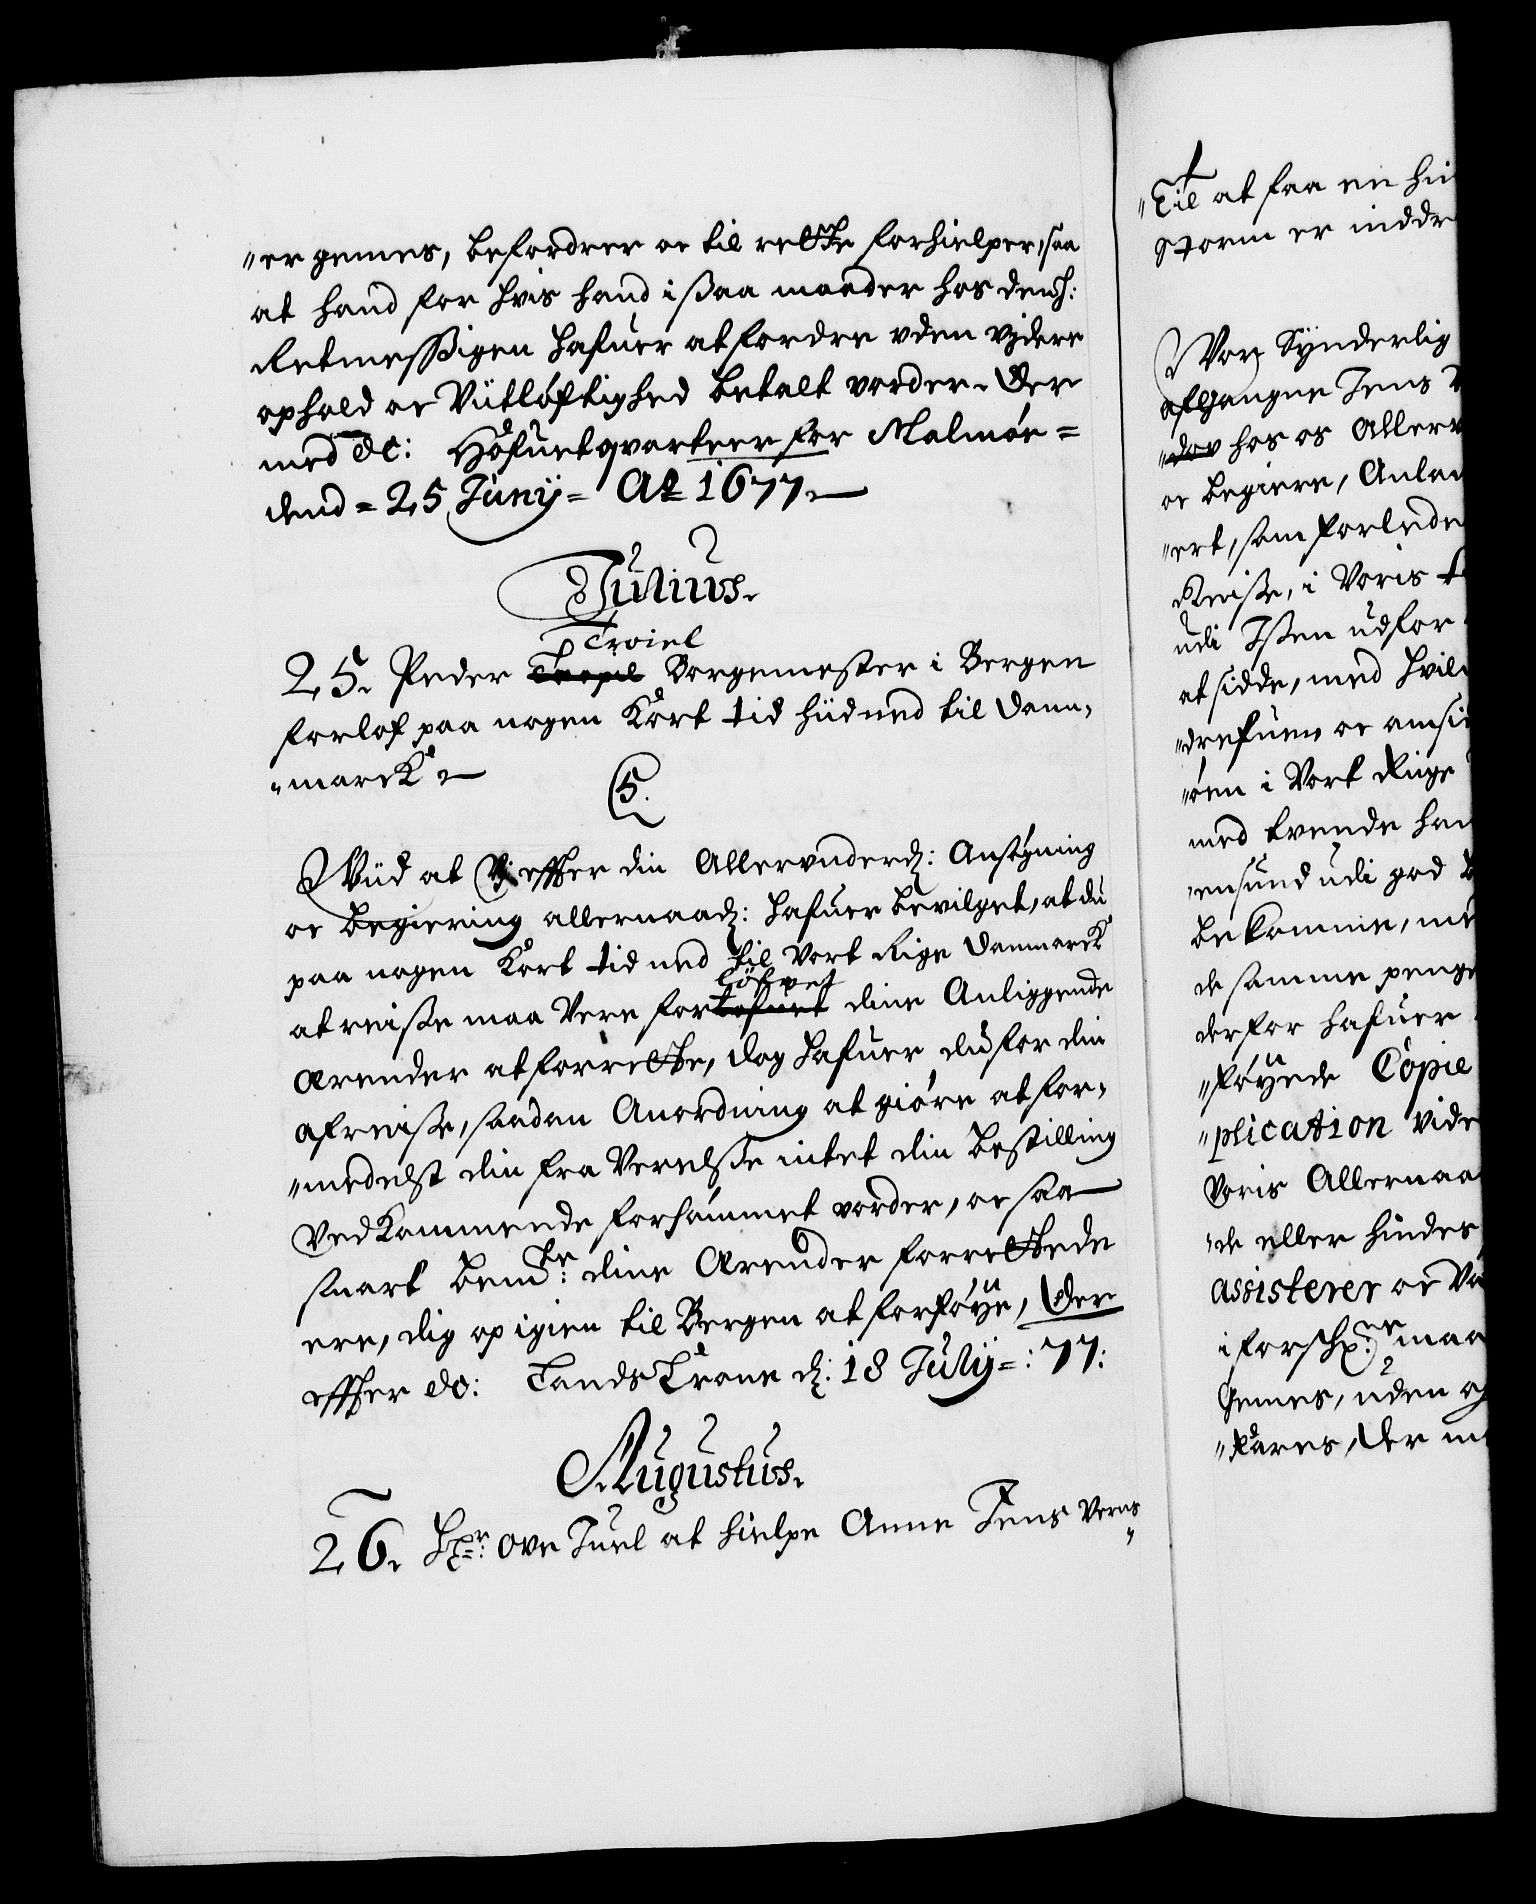 "er gemes, befordrer oc til rette forhielper, saa
at hand for hvis hand i ßaa maader hos dennḥ:
Retmessigen hafuer at fordre uden vjdere
ophold oc Viitløftighed betalt vorder. Der
med &c: Høfuetqvarteer for Malmøe =
dend = 25 Junij = Ao 1677.
Julius.
Troiel
25. Peder Tropil Borgemester i Bergen
forlof paa nogen Kort tid hiid ned til Dann,
"marck
S.
Wiid at Vj effter din Allerunderd: Ansøgning
oc begiering allernaad: hafuer bevilget, at du
paa nogen Kort tid ned til Vort Rige Danmarck
löfvet
at reiße maa Vere forlofuet dine Anliggende
Ærender at forrette, dog hafuer du for din
afreiße, saadan Anordning at giøre at for,
"medelst din fra Verelße intet din bestilling
Vedkommende forsømmet vorder, oc saa
snart bemte: dine Ærender forrettede
ere, dig op igien til Bergen at forføye, Der
effter &c: Landskrone d: 18 Julij = : 77:
Augustus.
26. Hr: Ove Juel at hielpe Anne Jens Verns
"
"Til at faa en
storm er
Vor Synderlig
afgangne Jens
"dov hos os
oc begiere,
"ert, som forlede
Reiße, i Voris
udi Ißen udfor
at sidde, med
"drefuen oc
"øen i Vort Riige
med tvende
"ensund udi god
bekomme,
de samme penge
derfor hafuer
"føyede Copie
"plication vide
Voris Allernaa
"de eller hindes
assisterer oc
i forschr:ne maa
Gemes, uden
"fares, Der